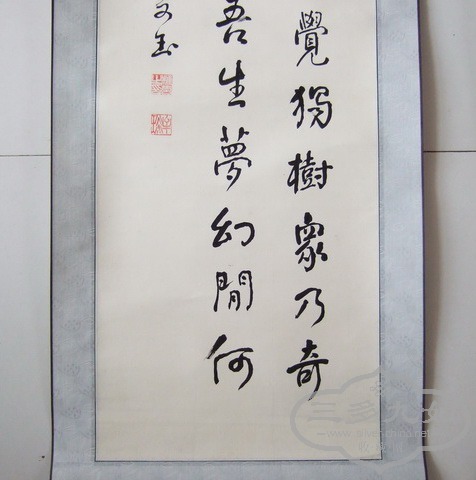 覺獨樹衆乃奇
吾生夢幻間何